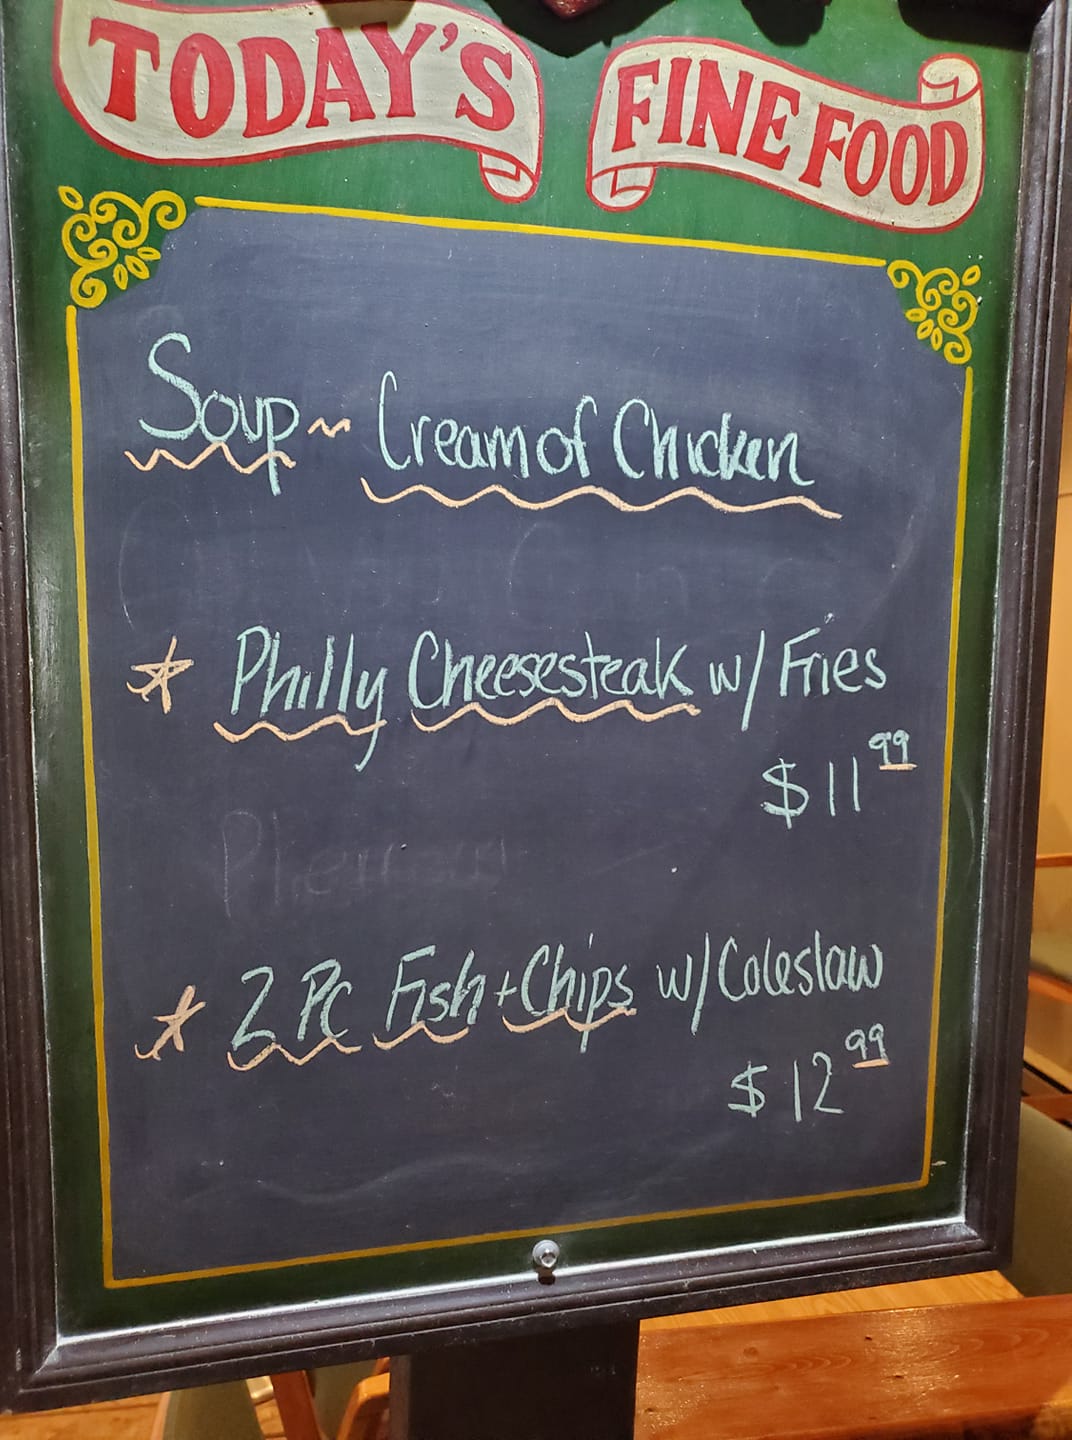 TODAY'S FINE FOOD
Soup ~ Cream of Chicken
Philly Cheesesteak w/ Fries
$11 99
2 Pc Fish + Chips w/ Coleslaw
$12 99